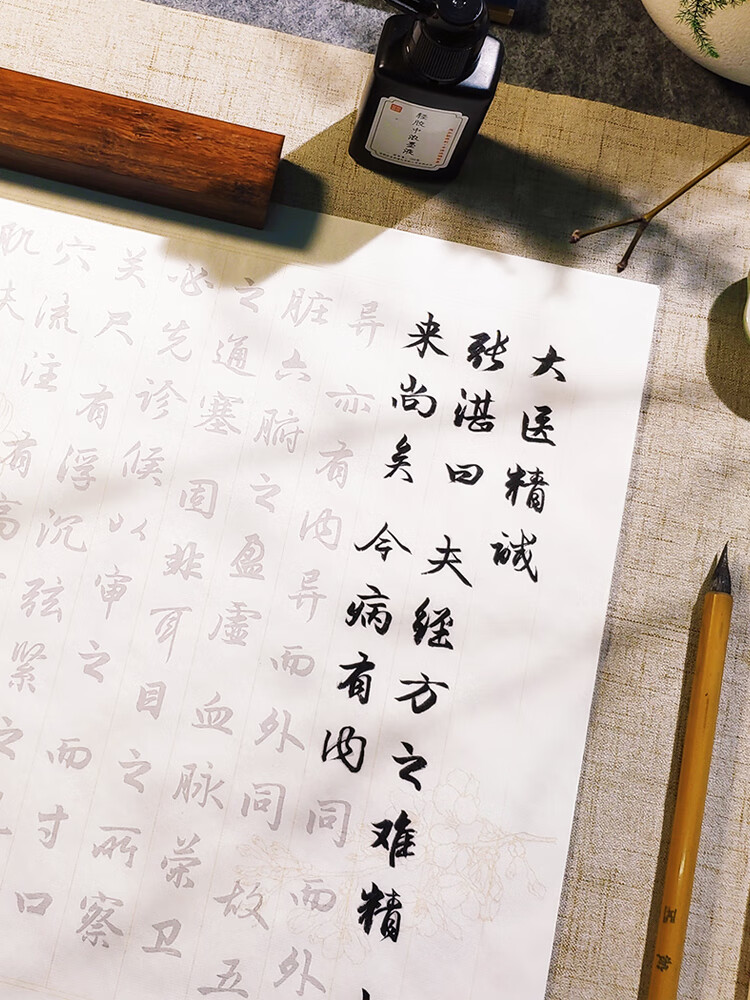 轻胶中浓墨液
大医精诚
张湛曰 夫经方之难精
来尚矣 今病有内同而外
异亦有内异而外同故五
脏六腑之盈虚血脉荣卫
之通塞固非耳目之所察
必先诊候以审之而寸口
关尺有浮沉弦紧之
穴流注有高
肌肤